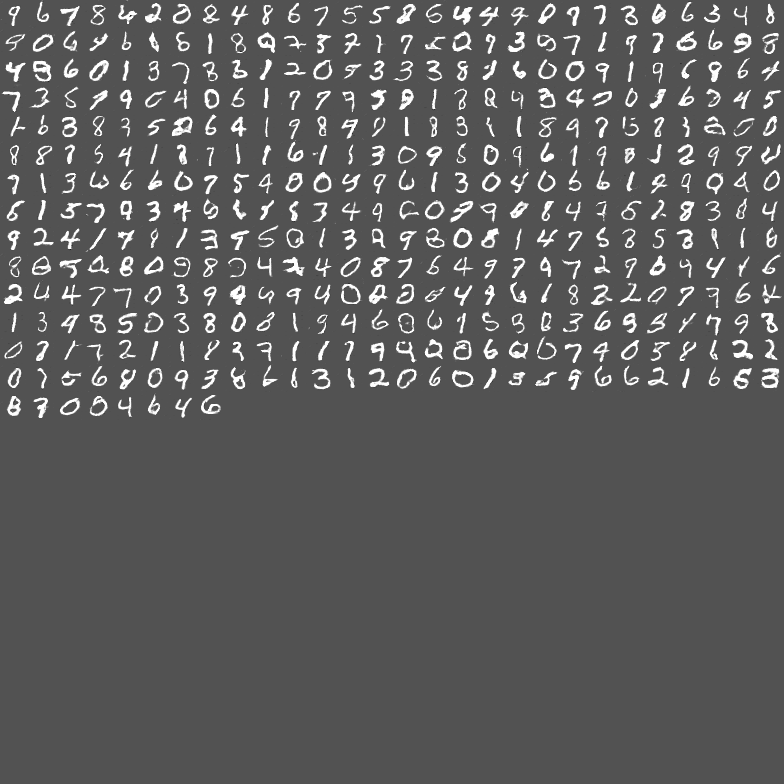 9 6 7 8 4 2 0 8 4 8 6 7 5 5 8 6 4 4 9 0 9 7 3 6 6 3 4 8
9 0 6 4 6 1 8 1 8 2 2 3 7 1 7 5 0 7 3 5 7 1 9 7 6 6 9 8
4 5 6 0 1 3 7 8 3 1 2 0 5 3 3 3 8 3 6 0 0 9 1 9 6 8 6 4
7 3 8 9 9 0 4 0 6 1 7 7 9 5 9 1 8 8 9 3 4 0 0 5 6 3 4 5
1 6 3 8 3 5 2 6 4 1 9 8 9 0 1 8 3 1 1 8 9 7 5 8 3 2 0 0
8 8 7 5 4 1 8 7 1 1 6 1 5 3 0 9 5 0 9 6 1 9 8 1 2 9 9 2
9 1 3 6 6 6 0 7 5 4 0 0 9 9 6 1 3 0 4 0 6 6 1 4 9 0 4 0
6 1 5 7 9 3 7 6 6 8 8 3 4 9 6 0 9 9 8 8 4 7 6 2 8 3 8 4
9 2 4 1 7 9 1 3 9 5 0 1 3 2 9 8 0 8 1 4 7 5 8 5 3 1 1 8
8 0 5 2 8 0 9 8 0 4 2 4 0 8 7 6 4 9 7 9 7 2 9 0 9 4 1 6
2 4 4 7 7 0 3 9 4 9 9 4 0 2 0 8 4 9 6 1 8 2 2 0 7 7 6 4
1 3 9 8 5 0 3 8 0 8 1 9 4 6 0 6 1 5 3 8 3 6 9 3 4 7 9 3
0 8 1 7 2 1 1 8 3 7 1 1 7 9 4 2 8 6 0 0 7 9 0 3 8 6 2 2
0 7 5 6 8 0 9 3 8 6 1 3 1 2 0 6 0 1 3 5 9 6 6 2 1 6 8 3
8 7 0 0 4 6 4 6